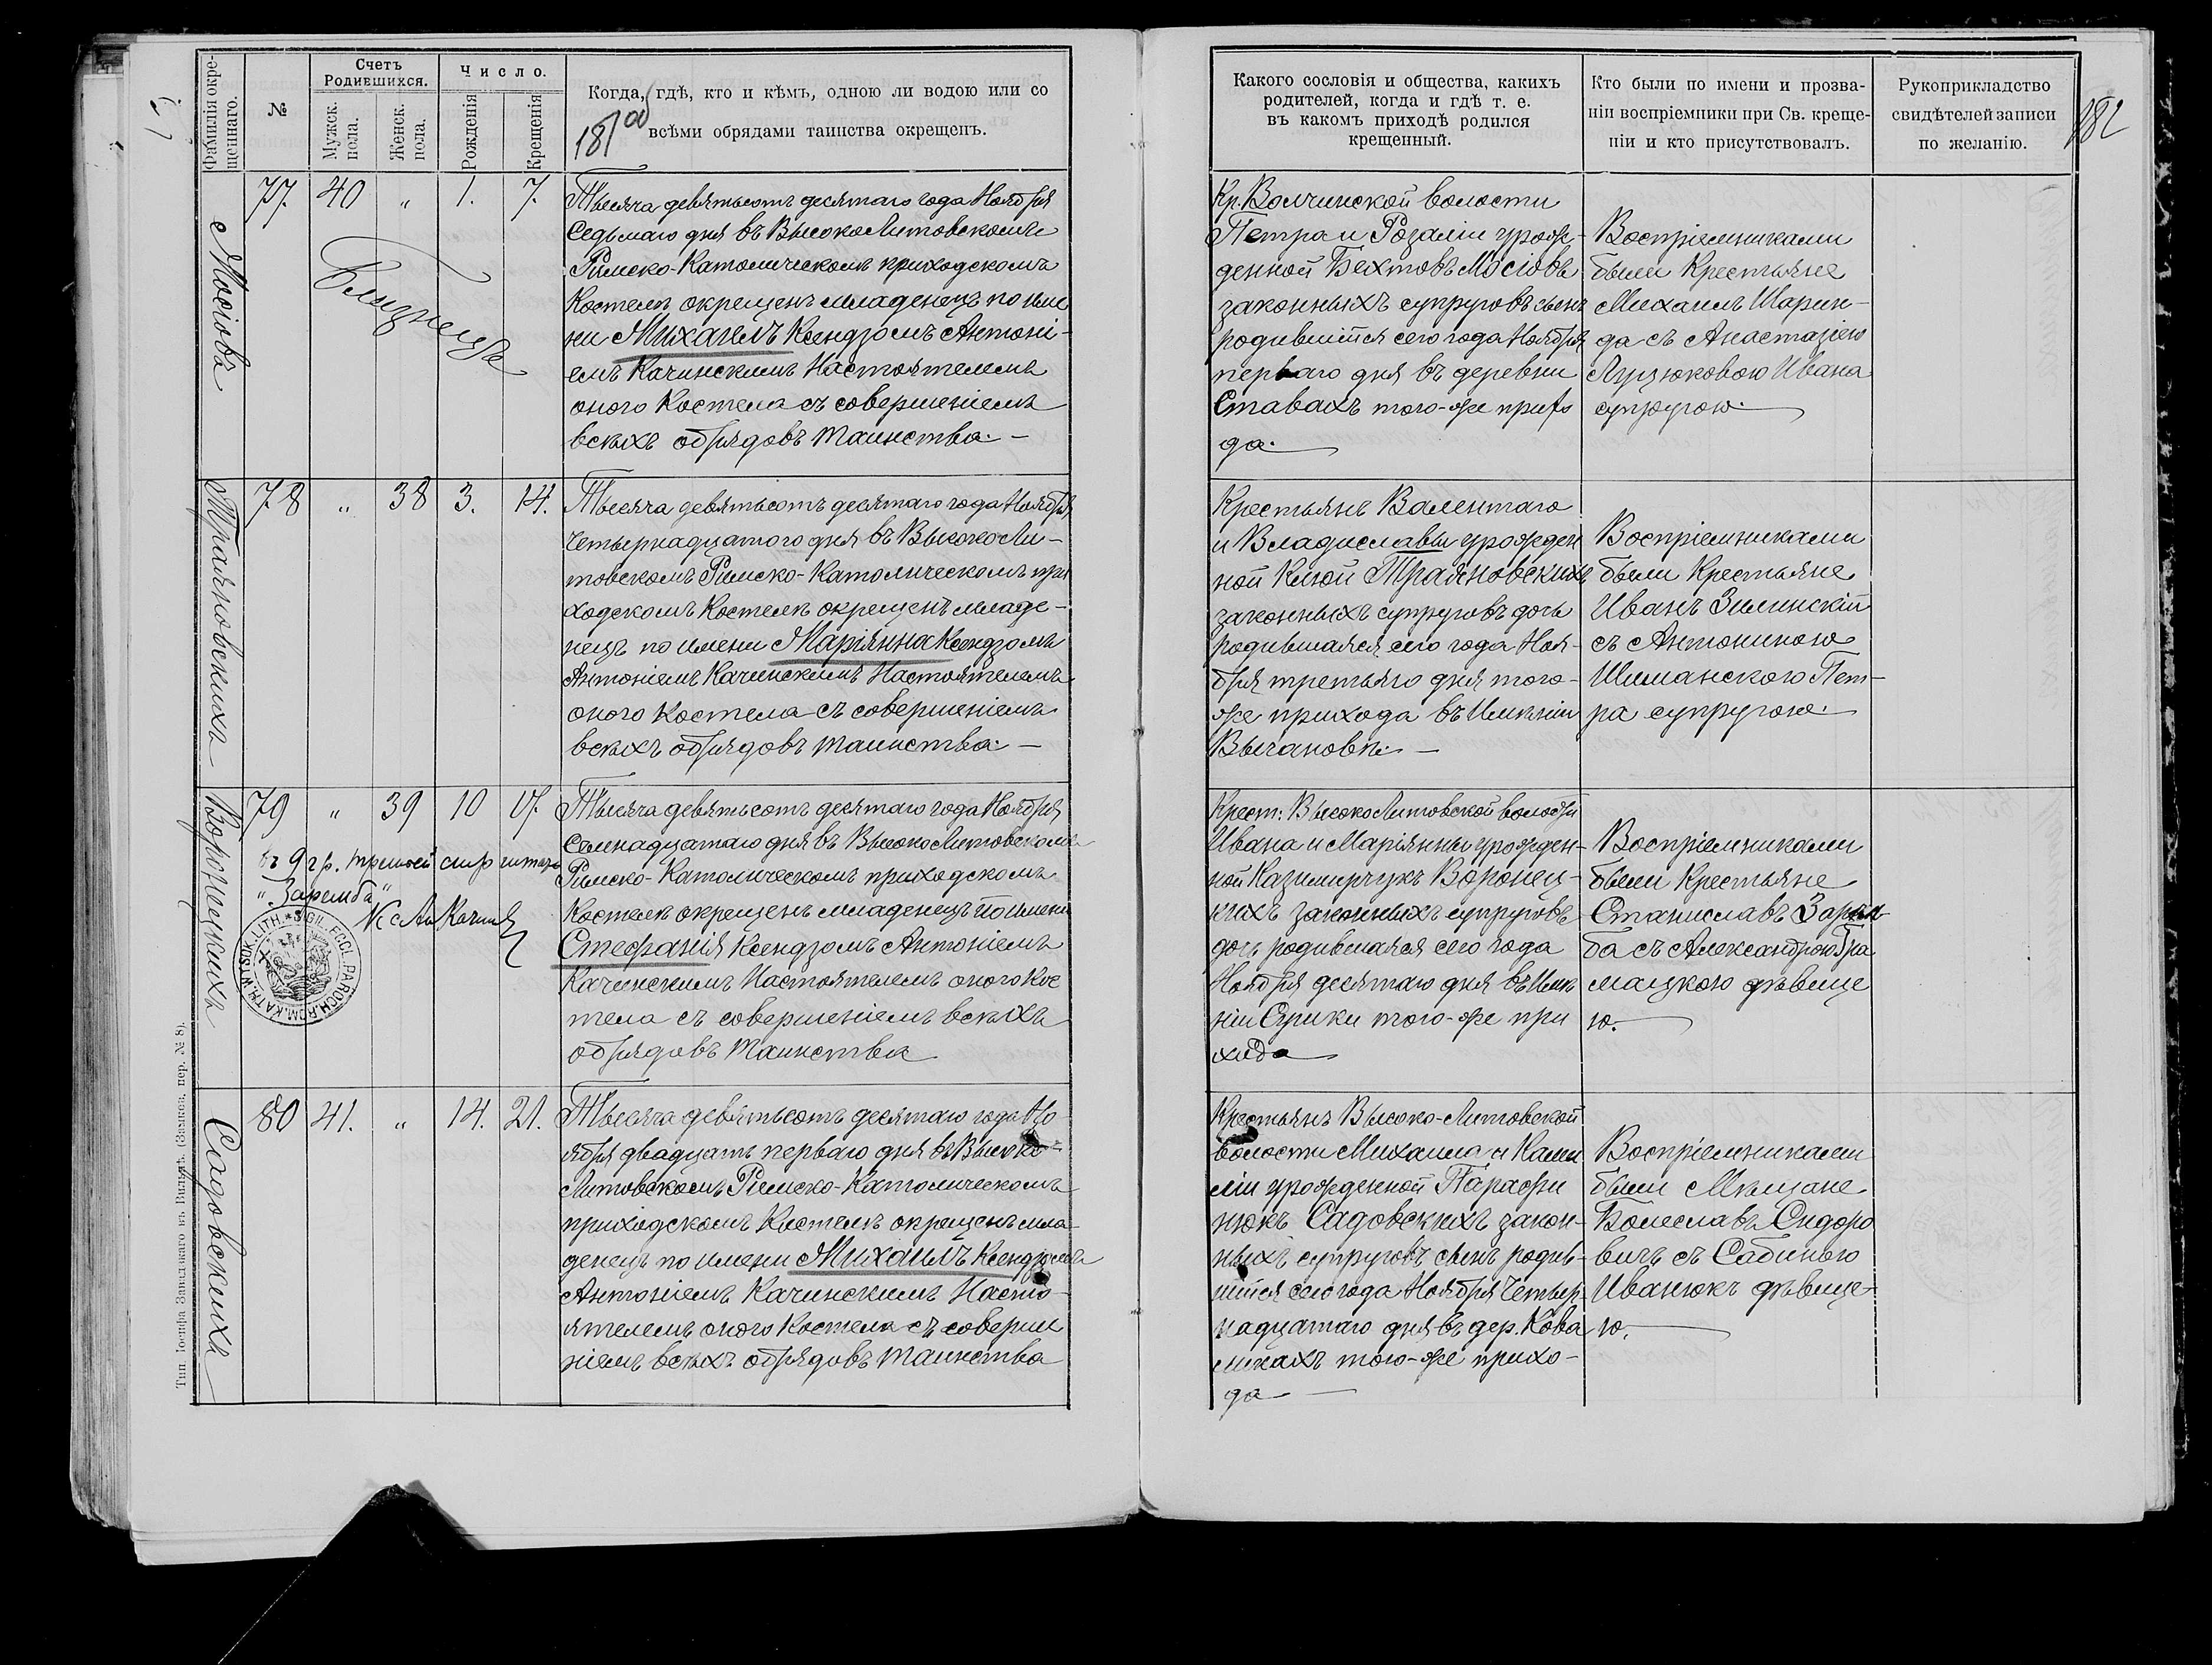 Фамилія окре-
щеннаго.
№
Счетъ
Родившихся.
Мужск.
пола.
Женск.
пола.
Число.
Рожденія
Крещенія
Когда, гдѣ, кто и кѣмъ, одною ли водою или со
всѣми обрядами таинства окрещенъ.
181
Какого сословія и общества, какихъ
родителей, когда и гдѣ т. е.
въ какомъ приходѣ родился
крещенный.
Кто были по имени и прозва-
ніи воспріемники при Св. креще-
ніи и кто присутствовалъ.
Рукоприкладство
свидѣтелей записи
по желанію.
182
Мосіовъ
77. 40 „ 1. 7.
Близнецъ
Тысяча девятьсотъ десятаго года Ноября
Седьмаго дня въ ВысокоЛитовскомъ
Римско-Католическомъ приходскомъ
Костелѣ окрещенъ младенецъ по име
ни Михаилъ Ксендзомъ Антоні-
емъ Качинскимъ Настоятелемъ
оного Костела съ совершеніемъ
всѣхъ обрядовъ таинства. —
Кр. Волчинской волости
Петра и Розаліи урож-
денной Бехтовъ Мосіовъ
законныхъ супруговъ сынъ
родившійся сего года Ноября
перваго дня въ деревни
Ставахъ того-же прихо
да.
Воспріемниками
были Крестьяне
Михаилъ Шарин-
да съ Анастазіею
Луцюковою Ивана
супругою.
Траяновскихъ
78 „ 38 3. 14.
Тысяча девятьсотъ десятаго года Ноября
Четырнадцатого дня въ ВысокоЛи-
товскомъ Римско-Католическомъ при
ходскомъ Костелѣ окрещенъ младе-
нецъ по имени Маріянна Ксендзомъ
Антоніемъ Качинскимъ Настоятелемъ
оного Костела съ совершеніемъ
всѣхъ обрядовъ таинства. —
Крестьянъ Валентаго
и Владиславы урожден
ной Клюй Траяновскихъ
законныхъ супруговъ дочь
родившаяся сего года Ноя-
бря третьяго дня того-
же прихода въ Имѣніи
Вычановкѣ. —
Воспріемниками
были Крестьяне
Иванъ Зилинскій
съ Антониною
Шиманского Пет-
ра супругою.
Воронецкихъ
79 „ 39 10 17.
въ 9 гр. третьей стр читать
„Заремба“
Кс Ан Качинс
SIGIL. ECCL. PAROCH. ROM. KATH. WYSOK. LITH.
Тысяча девятьсотъ десятаго года Ноября
Семнадцатаго дня въ ВысокоЛитовскомъ
Римско-Католическомъ приходскомъ
Костелѣ окрещенъ младенецъ по имени
Стефанія Ксендзомъ Антоніемъ
Качинскимъ Настоятелемъ оного Кос
тела съ совершеніемъ всѣхъ
обрядовъ таинства
Крест: ВысокоЛитовской волости
Ивана и Маріянны урожден-
ной Казимирчукъ Воронец-
кихъ законныхъ супруговъ
дочь родившаяся сего года
Ноября десятаго дня въ Имѣ
ніи Сурики того-же при
хода
Воспріемниками
были Крестьяне
Станиславъ Зарем-
ба съ Александрою Гра
мацкою дѣвице
ю.
Садовскихъ
80 41. „ 14. 21.
Тысяча девятьсотъ десятаго года Но-
ября двадцать перваго дня въ Высоко-
Литовскомъ Римско-Католическомъ
приходскомъ Костелѣ окрещенъ мла-
денецъ по имени Михаилъ Ксендзомъ
Антоніемъ Качинскимъ Насто-
ятелемъ оного Костела съ соверше
ніемъ всѣхъ обрядовъ таинства
Крестьянъ Высоко-Литовской
волости Михаила и Ками
ліи урожденной Парафи
нюкъ Садовскихъ закон-
ныхъ супруговъ сынъ родив-
шійся сего года Ноября Четыр-
надцатаго дня въ дер. Кова
ликахъ того-же прихо-
да
Воспріемниками
были Мѣщане
Болеславъ Сидоро
вичъ съ Сабиною
Иванюкъ дѣвице-
ю.
Тип. Іосифа Завадзкаго въ Вильнѣ. (Замков. пер. № 8).